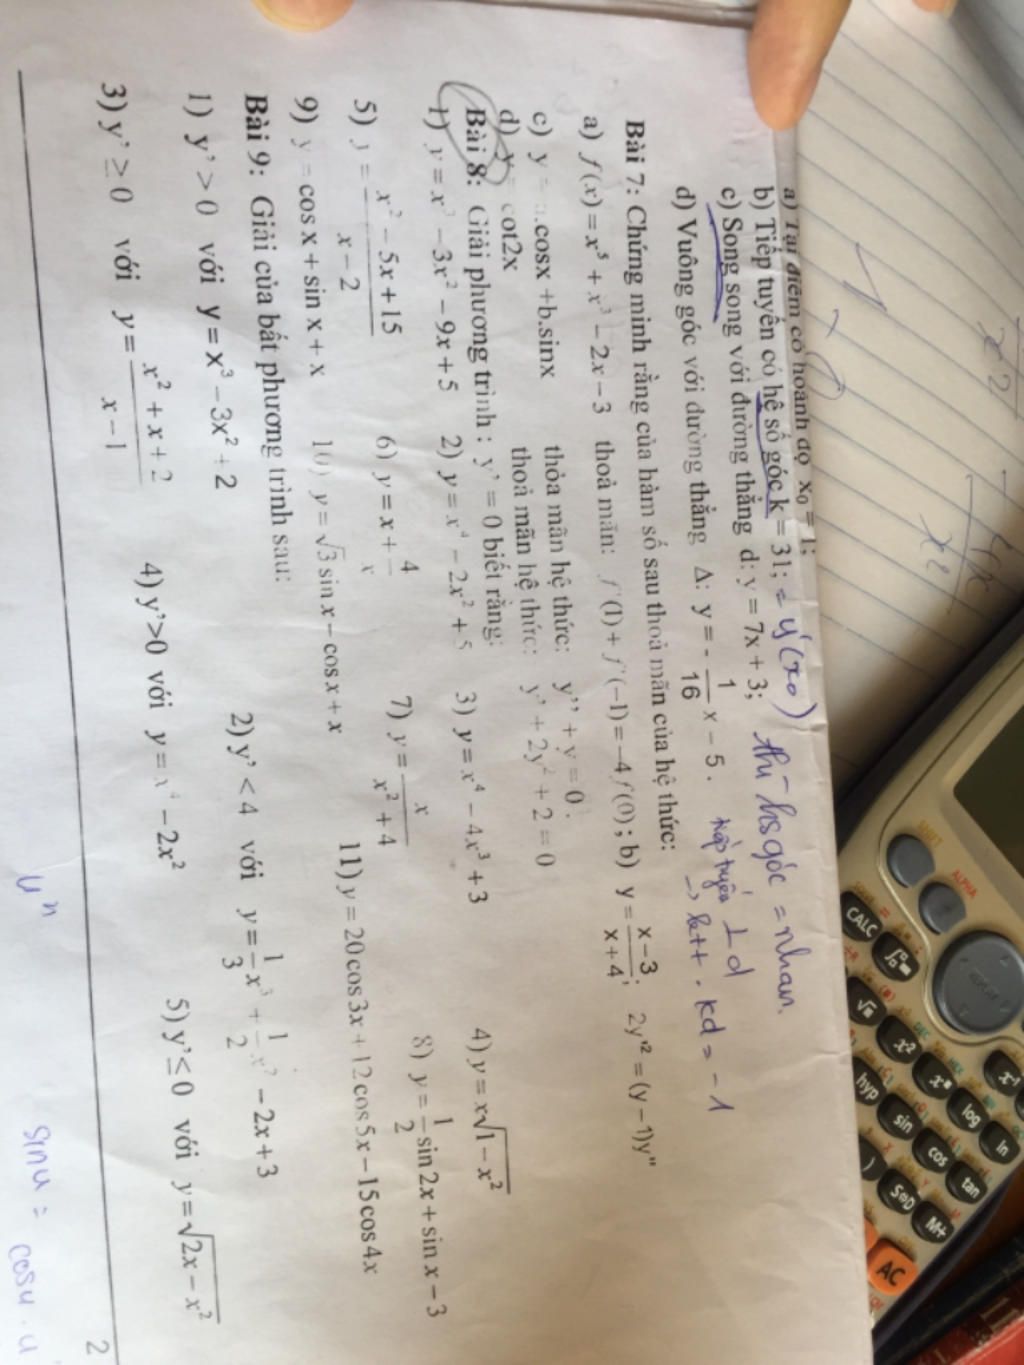 a) Tại điểm có hoành độ x₀ = 1;
b) Tiếp tuyến có hệ số góc k = 31; = y'(x₀)
c) Song song với đường thẳng d: y = 7x + 3; thì hsgóc = nhau.
d) Vuông góc với đường thẳng Δ: y = -1/16 x - 5. tiếp tuyến ⊥ d
→ ktt . kd = -1
Bài 7: Chứng minh rằng của hàm số sau thoả mãn của hệ thức:
a) f(x) = x⁵ + x³ - 2x - 3 thoả mãn: f'(1) + f'(-1) = -4f(0); b) y = (x-3)/(x+4); 2y'² = (y-1)y"
c) y = a.cosx + b.sinx thỏa mãn hệ thức: y'' + y = 0.
d) y = cot2x thoả mãn hệ thức: y' + 2y² + 2 = 0
Bài 8: Giải phương trình : y' = 0 biết rằng:
1) y = x³ - 3x² - 9x + 5 2) y = x⁴ - 2x² + 5 3) y = x⁴ - 4x³ + 3 4) y = x√(1-x²)
5) y = (x² - 5x + 15)/(x - 2) 6) y = x + 4/x 7) y = x/(x² + 4) 8) y = 1/2 sin 2x + sin x - 3
9) y = cos x + sin x + x 10) y = √3 sin x - cos x + x 11) y = 20 cos 3x + 12 cos 5x - 15 cos 4x
Bài 9: Giải của bất phương trình sau:
1) y' > 0 với y = x³ - 3x² + 2 2) y' < 4 với y = 1/3 x³ + 1/2 x² - 2x + 3
3) y' ≥ 0 với y = (x² + x + 2)/(x - 1) 4) y'>0 với y = x⁴ - 2x² 5) y' ≤ 0 với y = √(2x - x²)
2
uⁿ
sinu = cosu . u'
SHIFT
ALPHA
REPLAY
CALC
x⁻¹
√
x²
log
ln
hyp
sin
cos
tan
)
S⇔D
M+
AC